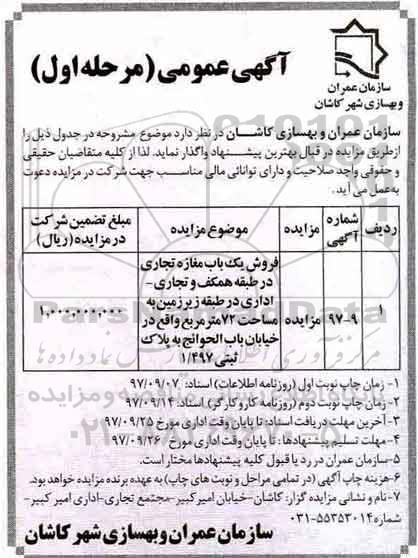 سازمان عمران
و بهسازی شهر کاشان
آگهی عمومی (مرحله اول)
سازمان عمران و بهسازی کاشــان در نظر دارد موضوع مشروحه در جدول ذیل را
از طریق مزایده در قبال بهترین پیشــنهاد واگذار نماید. لذا از کلیه متقاضیان حقیقی
و حقوقی واجد صلاحیت و دارای توانائی مالی مناسب جهت شرکت در مزایده دعوت
به عمل می آید.
ردیف | شماره آگهی | مزایده | موضوع مزایده | مبلغ تضمین شرکت در مزایده (ریال)
۱ | ۹۷-۹ | مزایده | فروش یک باب مغازه تجاری
در طبقه همکف و تجاری -
اداری در طبقه زیرزمین به
مساحت ۷۲ متر مربع واقع در
خیابان باب الحوائج به پلاک
ثبتی ۱/۴۹۷ | ۱,۰۰۰,۰۰۰,۰۰۰
۱- زمان چاپ نوبت اول (روزنامه اطلاعات) اسناد: ۹۷/۰۹/۰۷
۲- زمان چاپ نوبت دوم (روزنامه کار و کارگر) اسناد: ۹۷/۰۹/۱۴
۳- آخرین مهلت دریافت اسناد: تا پایان وقت اداری مورخ ۹۷/۰۹/۲۵
۴- مهلت تسلیم پیشنهادها: تا پایان وقت اداری مورخ ۹۷/۰۹/۲۶
۵- سازمان عمران در رد یا قبول کلیه پیشنهادها مختار است.
۶- هزینه چاپ آگهی (در تمامی مراحل و نوبت های چاپ) به عهده برنده مزایده خواهد بود.
۷- نام و نشانی مزایده گزار: کاشان-خیابان امیرکبیر-مجتمع تجاری-اداری امیر کبیر-
شماره ۵۵۳۵۳۰۱۴-۰۳۱
سازمان عمران و بهسازی شهر کاشان